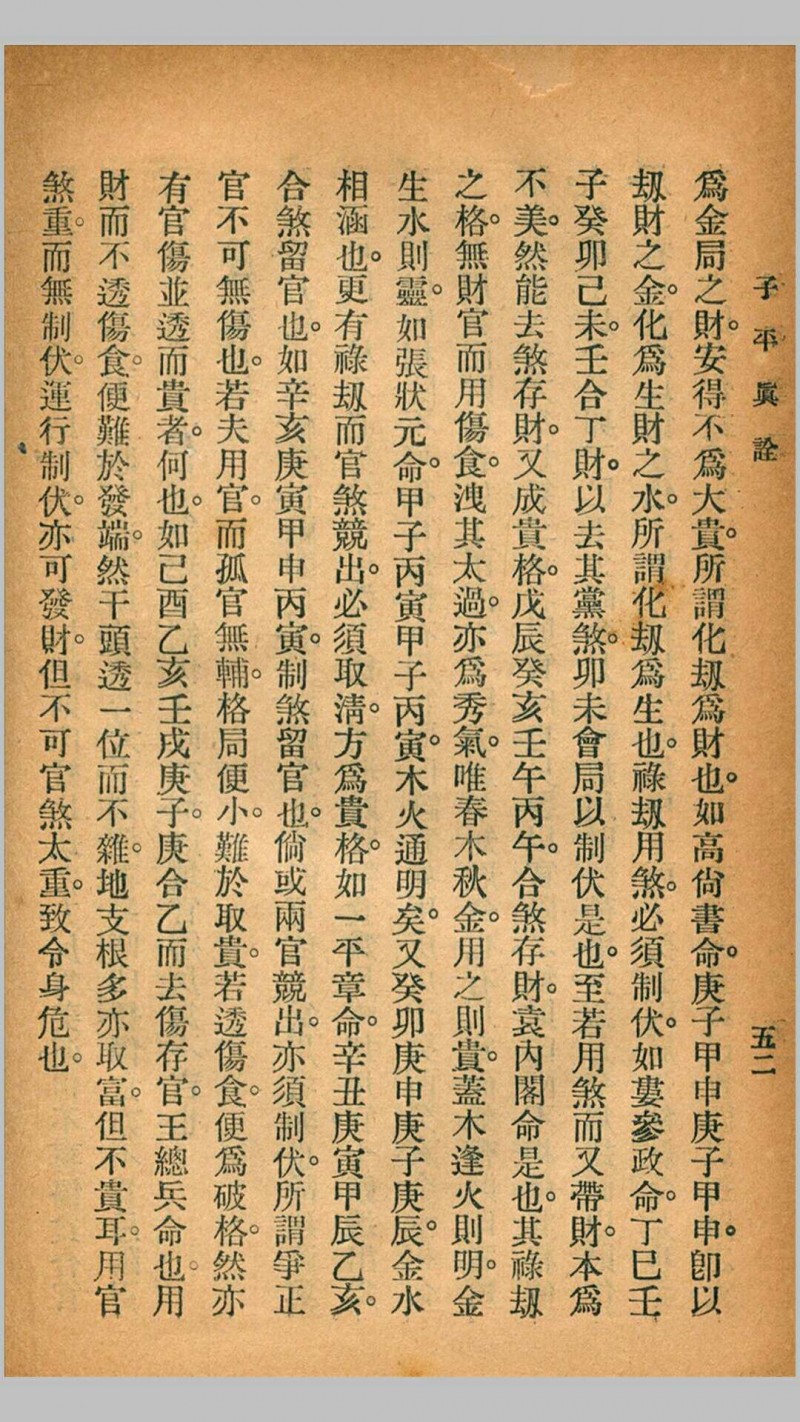 子平眞詮
五二
爲金局之財。安得不爲大貴。所謂化刼爲財也。如高尙書命。庚子甲申庚子甲申。卽以
刼財之金。化爲生財之水。所謂化刼爲生也。祿刼用煞。必須制伏。如婁參政命。丁巳壬
子癸卯己未。壬合丁財。以去其黨煞。卯未會局以制伏是也。至若用煞而又帶財。本爲
不美。然能去煞存財。又成貴格。戊辰癸亥壬午丙午。合煞存財。袁內閣命是也。其祿刼
之格。無財官而用傷食。洩其太過。亦爲秀氣。唯春木秋金。用之則貴。蓋木逢火則明。金
生水則靈。如張狀元命。甲子丙寅甲子丙寅。木火通明矣。又癸卯庚申庚子庚辰。金水
相涵也。更有祿刼而官煞競出。必須取淸。方爲貴格。如一平章命。辛丑庚寅甲辰乙亥。
合煞留官也。如辛亥庚寅甲申丙寅。制煞留官也。倘或兩官競出。亦須制伏。所謂爭正
官不可無傷也。若夫用官。而孤官無輔。格局便小。難於取貴。若透傷食。便爲破格。然亦
有官傷並透而貴者。何也。如己酉乙亥壬戌庚子。庚合乙而去傷存官。王總兵命也。用
財而不透傷食。便難於發端。然干頭透一位而不雜。地支根多亦取富。但不貴耳。用官
煞重。而無制伏。運行制伏。亦可發財。但不可官煞太重。致令身危也。